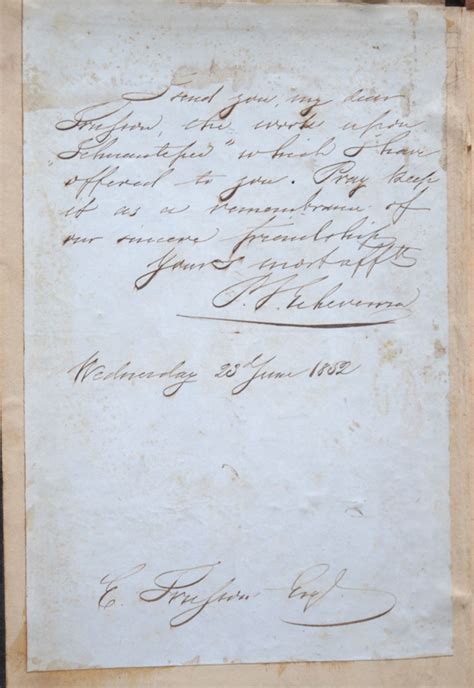 I send you, my dear
the work upon
which I have
offered to you. Pray keep
it as a remembrance of
our sincere friendship
Yours most afftly
Wednesday 23d June 1852
E. Esqr.